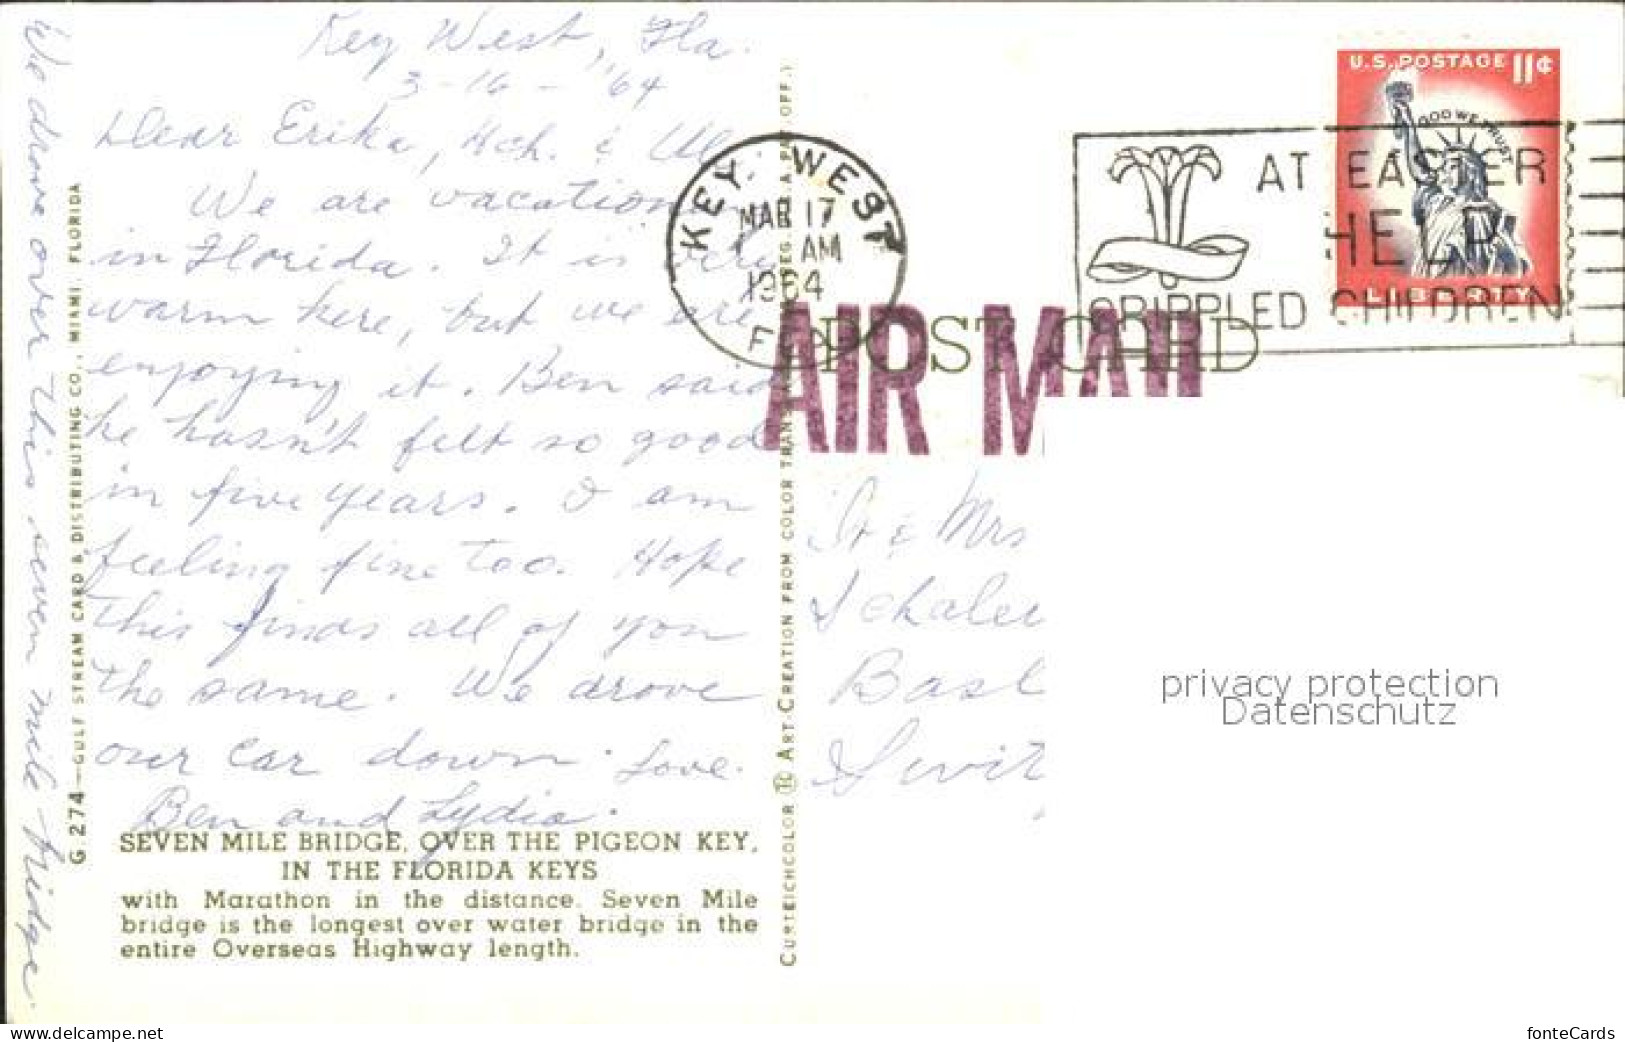 Key West, Fla.
3-16-'64
Dear Erika, Hch. &
We are vacationing
in Florida. It is very
warm here, but we are
enjoying it. Ben said
he hasn't felt so good
in five years. I am
feeling fine too. Hope
this finds all of you
the same. We drove
our car down. Love.
Ben and Lydia.
We drove over this seven mile bridge.
SEVEN MILE BRIDGE, OVER THE PIGEON KEY,
IN THE FLORIDA KEYS
with Marathon in the distance. Seven Mile
bridge is the longest over water bridge in the
entire Overseas Highway length.
G.274—GULF STREAM CARD & DISTRIBUTING CO., MIAMI, FLORIDA
CURTEICHCOLOR ART-CREATION FROM COLOR TRANSPARENCY (REG. U.S.A. PAT. OFF.)
KEY WEST
MAR 17
AM
1964
FLA
POST CARD
AIR MAIL
AT EASTER
HELP
CRIPPLED CHILDREN
U.S. POSTAGE 11¢
IN GOD WE TRUST
LIBERTY
& Mrs
Basl
Swit
privacy protection
Datenschutz
www.delcampe.net
fonteCards